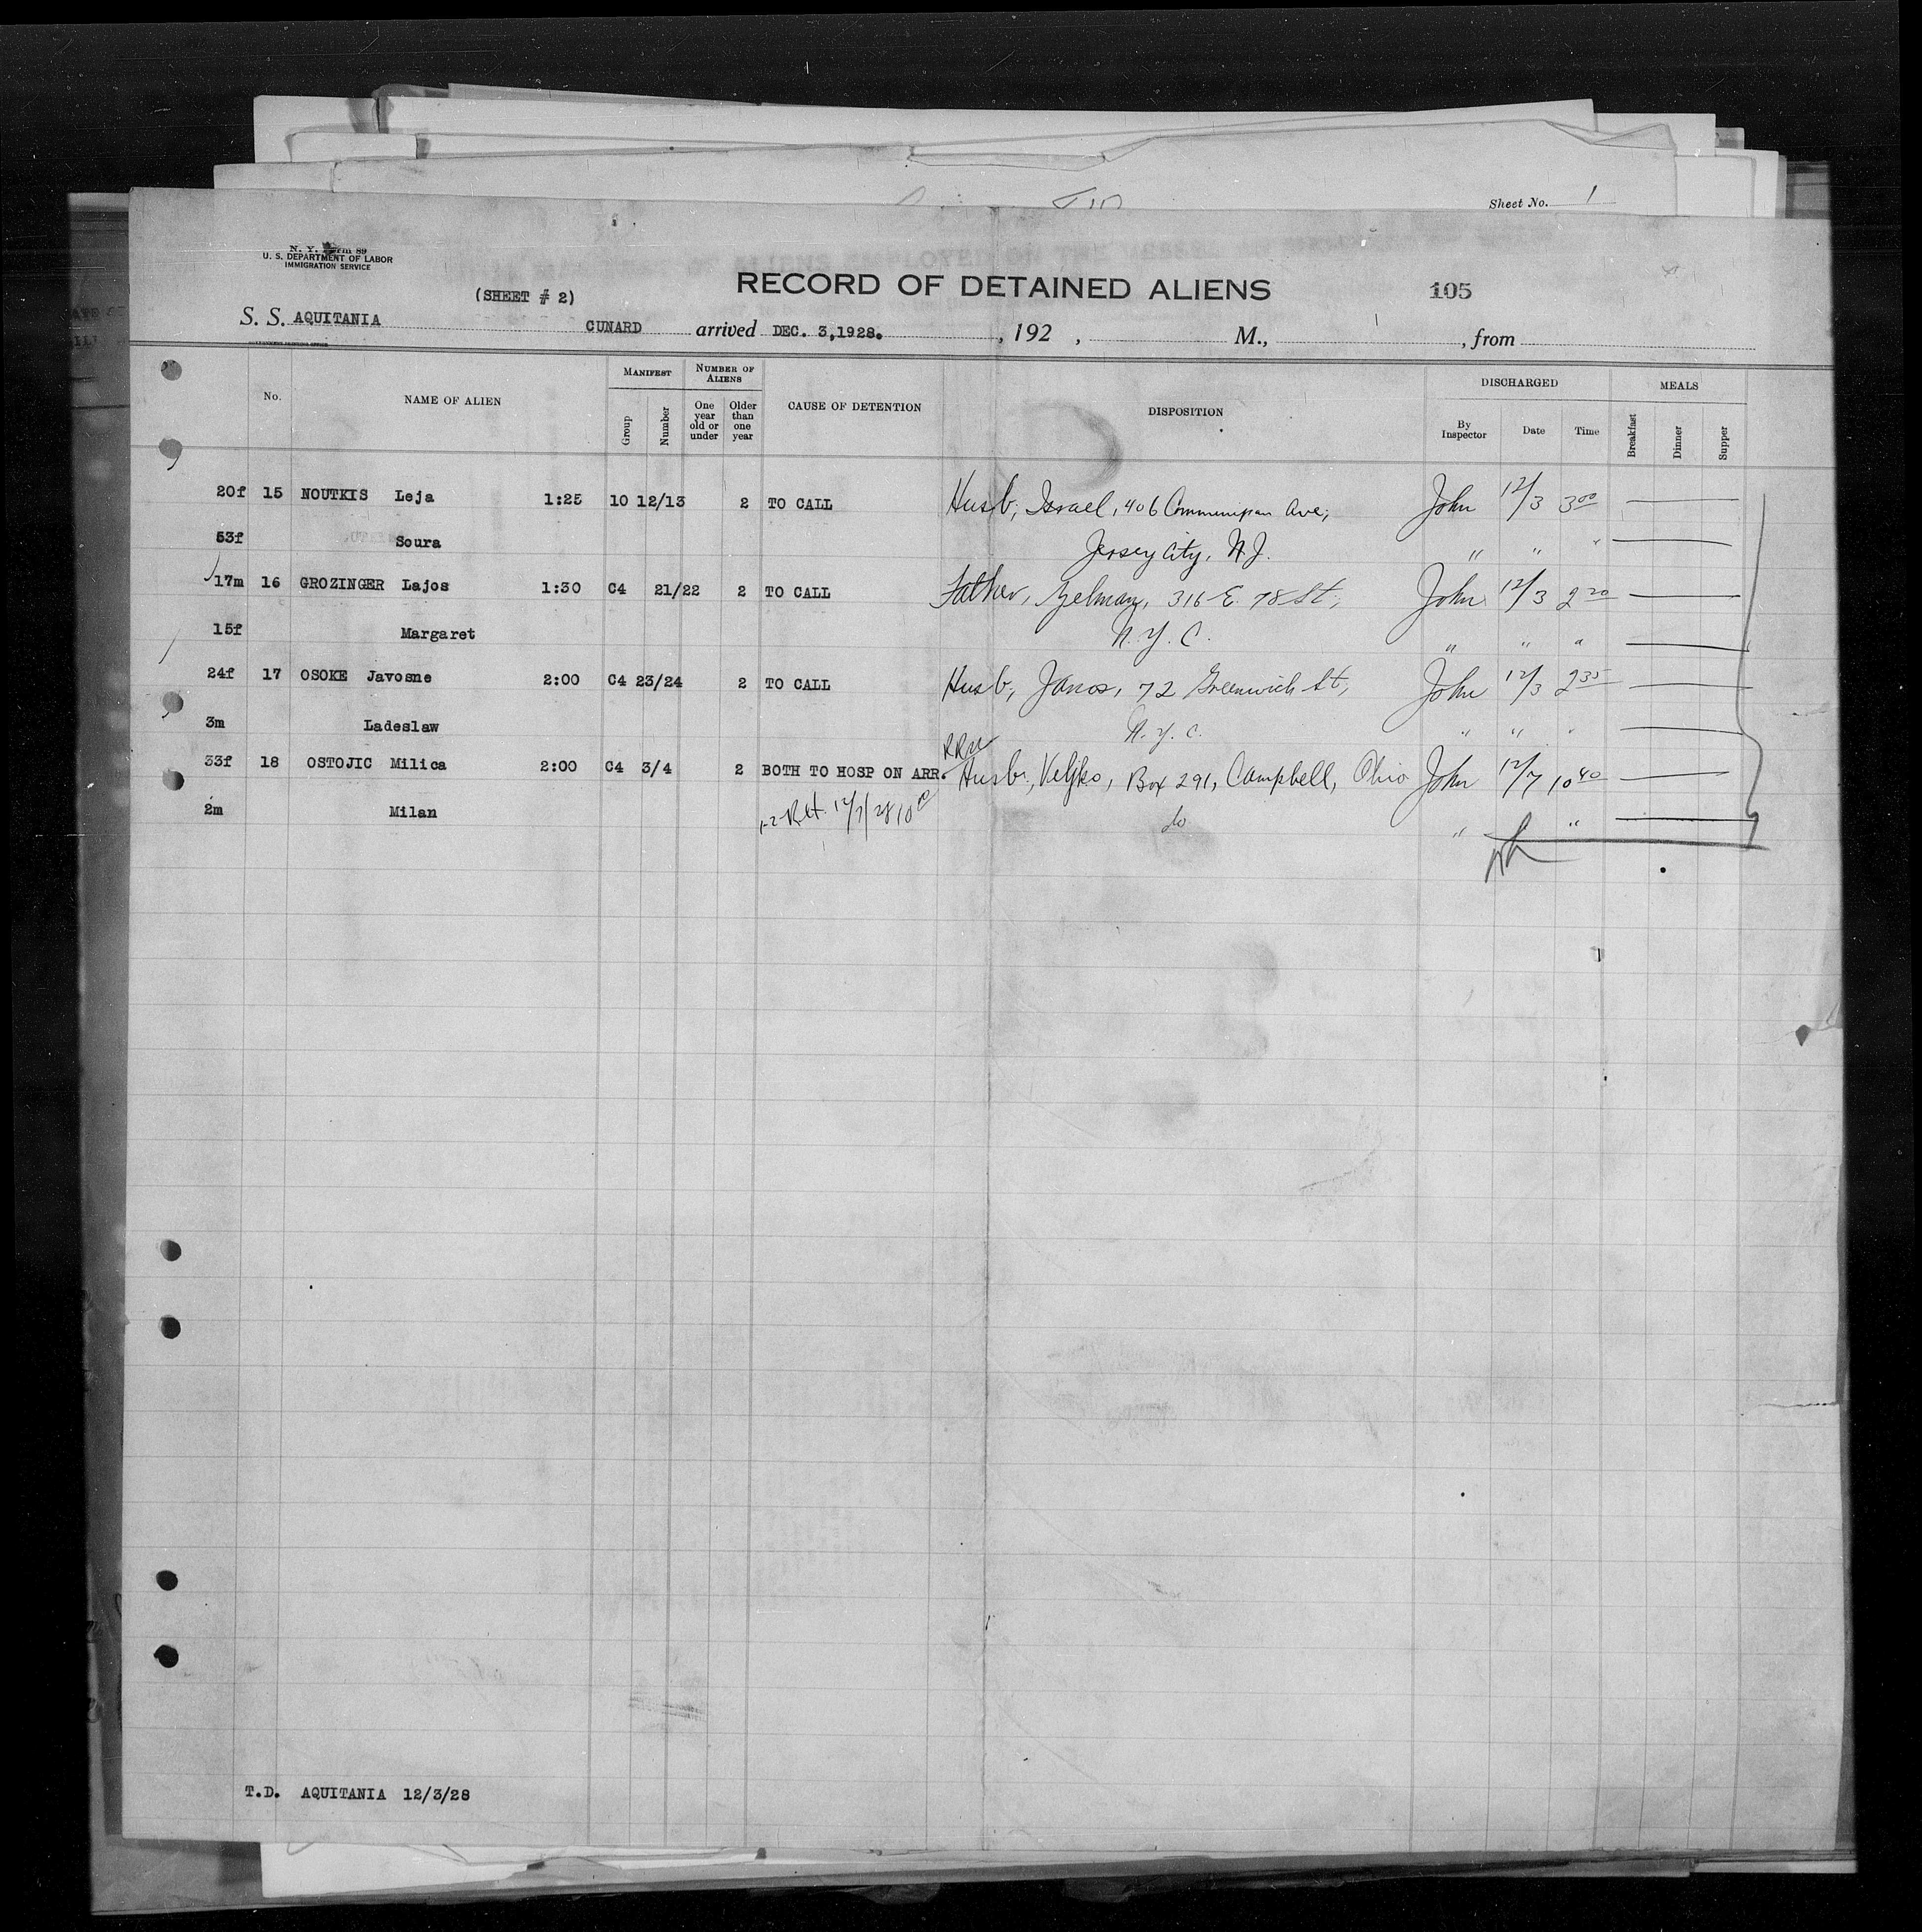 Sheet No. 1
N. Y. Form 89
U. S. DEPARTMENT OF LABOR
IMMIGRATION SERVICE
RECORD OF DETAINED ALIENS 105
(SHEET # 2)
S. S. AQUITANIA CUNARD arrived DEC. 3,1928. , 192 , M., , from
No. NAME OF ALIEN MANIFEST Group Number NUMBER OF ALIENS One year old or under Older than one year CAUSE OF DETENTION DISPOSITION DISCHARGED By Inspector Date Time MEALS Breakfast Dinner Supper
20f 15 NOUTKIS Leja 1:25 10 12/13 2 TO CALL Husb, Israel, 406 Communipaw Ave, John 12/3 3 00
53f Soura Jersey City, N.J. " " "
17m 16 GROZINGER Lajos 1:30 C4 21/22 2 TO CALL Father, 316 E. 78 St, John 12/3 2 20
15f Margaret N.Y.C. " " "
24f 17 OSOKE Javosne 2:00 C4 23/24 2 TO CALL Husb, Janos, 72 Greenwich St, John 12/3 2 35
3m Ladeslaw N.Y.C. " " "
33f 18 OSTOJIC Milica 2:00 C4 3/4 2 BOTH TO HOSP ON ARR. RRW Husb, Veljko, Box 291, Campbell, Ohio John 12/7 10 40
2m Milan 1-2 Ret. 12/7/28 10 00 do " "
T.D. AQUITANIA 12/3/28